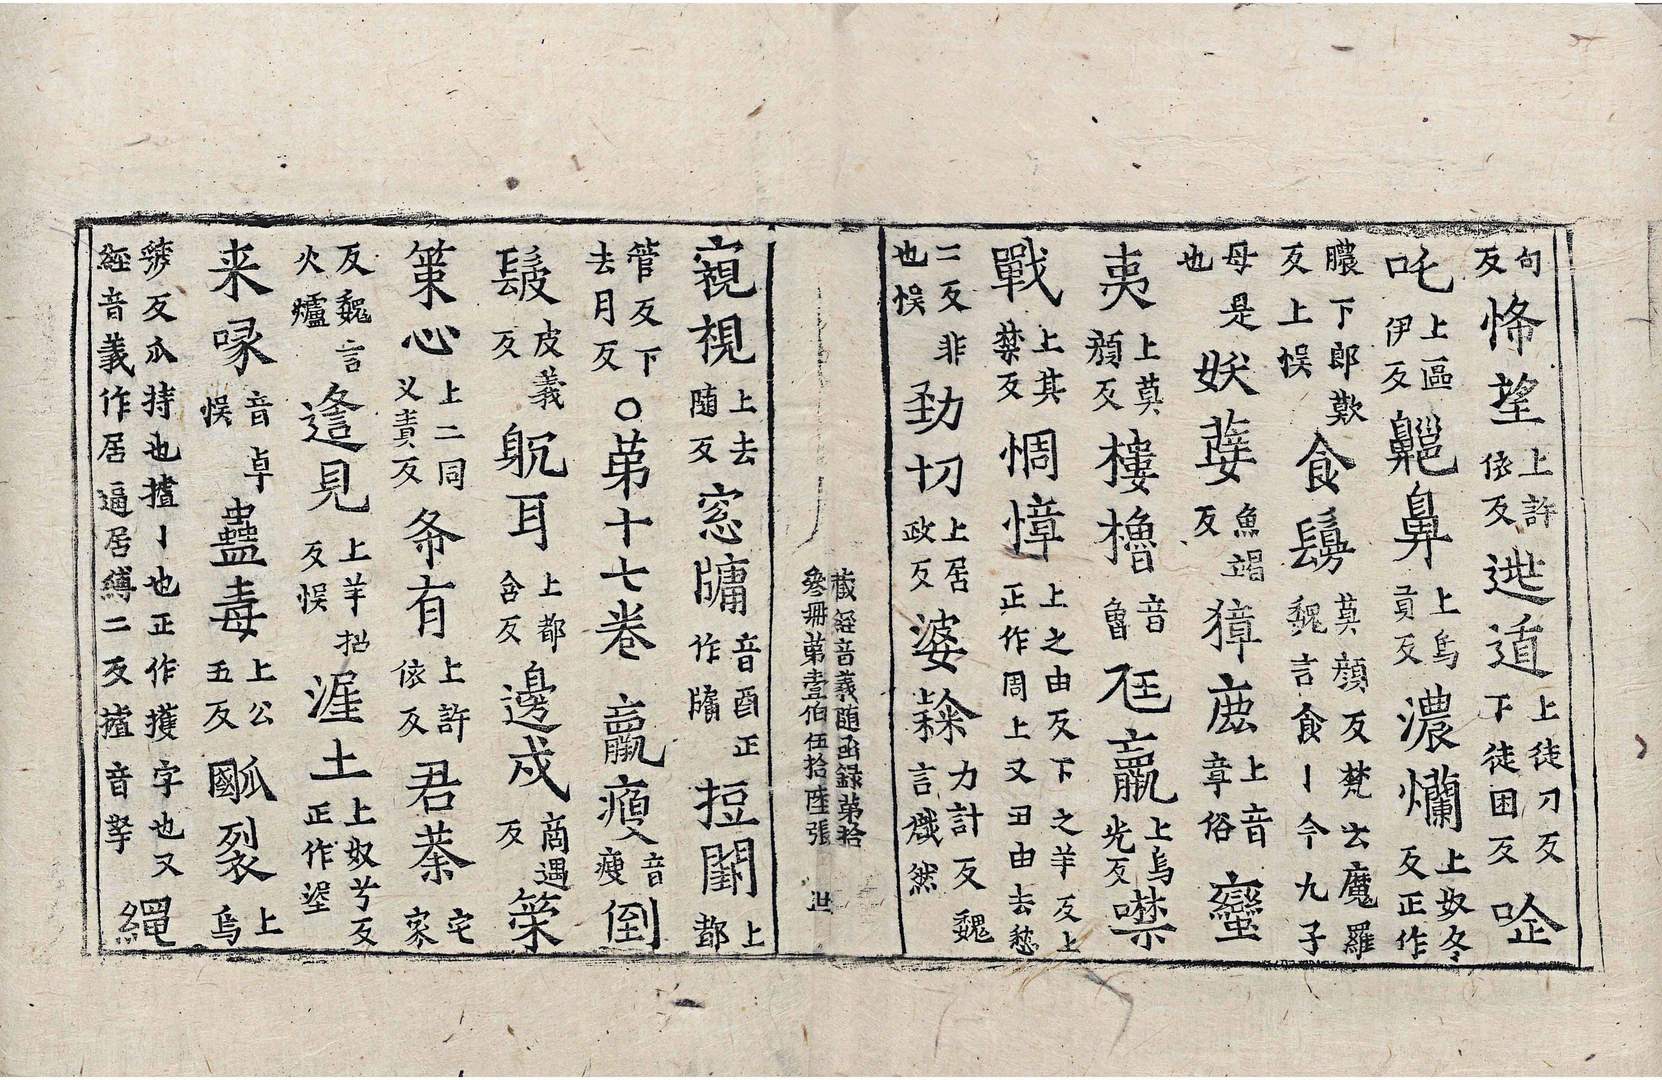 句反悕望上許依反逃遁上徒刀反下徒困反㖶
吒上區伊反齆鼻上烏貢反濃爛上奴冬反正作
膿下郎歎反上悮食鬘莫顔反梵云魔羅魏言食丨今九子
母是也妖㜸魚竭反獐鹿上音章俗蠻
夷上莫顔反樓櫓音魯尫羸上烏光反噤
戰上其禁反惆慞上之由反下之羊反上正作周上又丑由去愁
二反非也悮勁切上居政反婆𥻦力計反魏言㦸然
藏經音義隨函錄第拾
叅冊第壹伯伍拾陸張
窺視上去隨反窓牗音酉正作牖挳閞上都
管反下去月反○第十七卷羸瘦音瘦倒
髲皮義反躭耳上都含反邊戍商遇反策
策心上二同义責反希有上許依反君荼宅家
反魏言火爐逢見上羊招反悮涅土上奴兮反正作埿
来喙音卓悮蠱毒上公五反㼌裂上烏
虢反爪持也摣丨也正作擭字也又
經音義作居逼居縛二反摣音拏繩